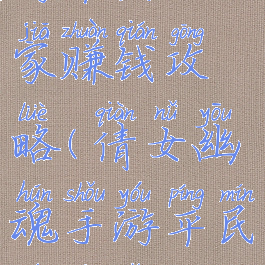 jiā zhuàn qián gōng
家赚钱攻
lüè qiàn nǚ yōu
略(倩女幽
hún shǒu yóu píng mín
魂手游平民